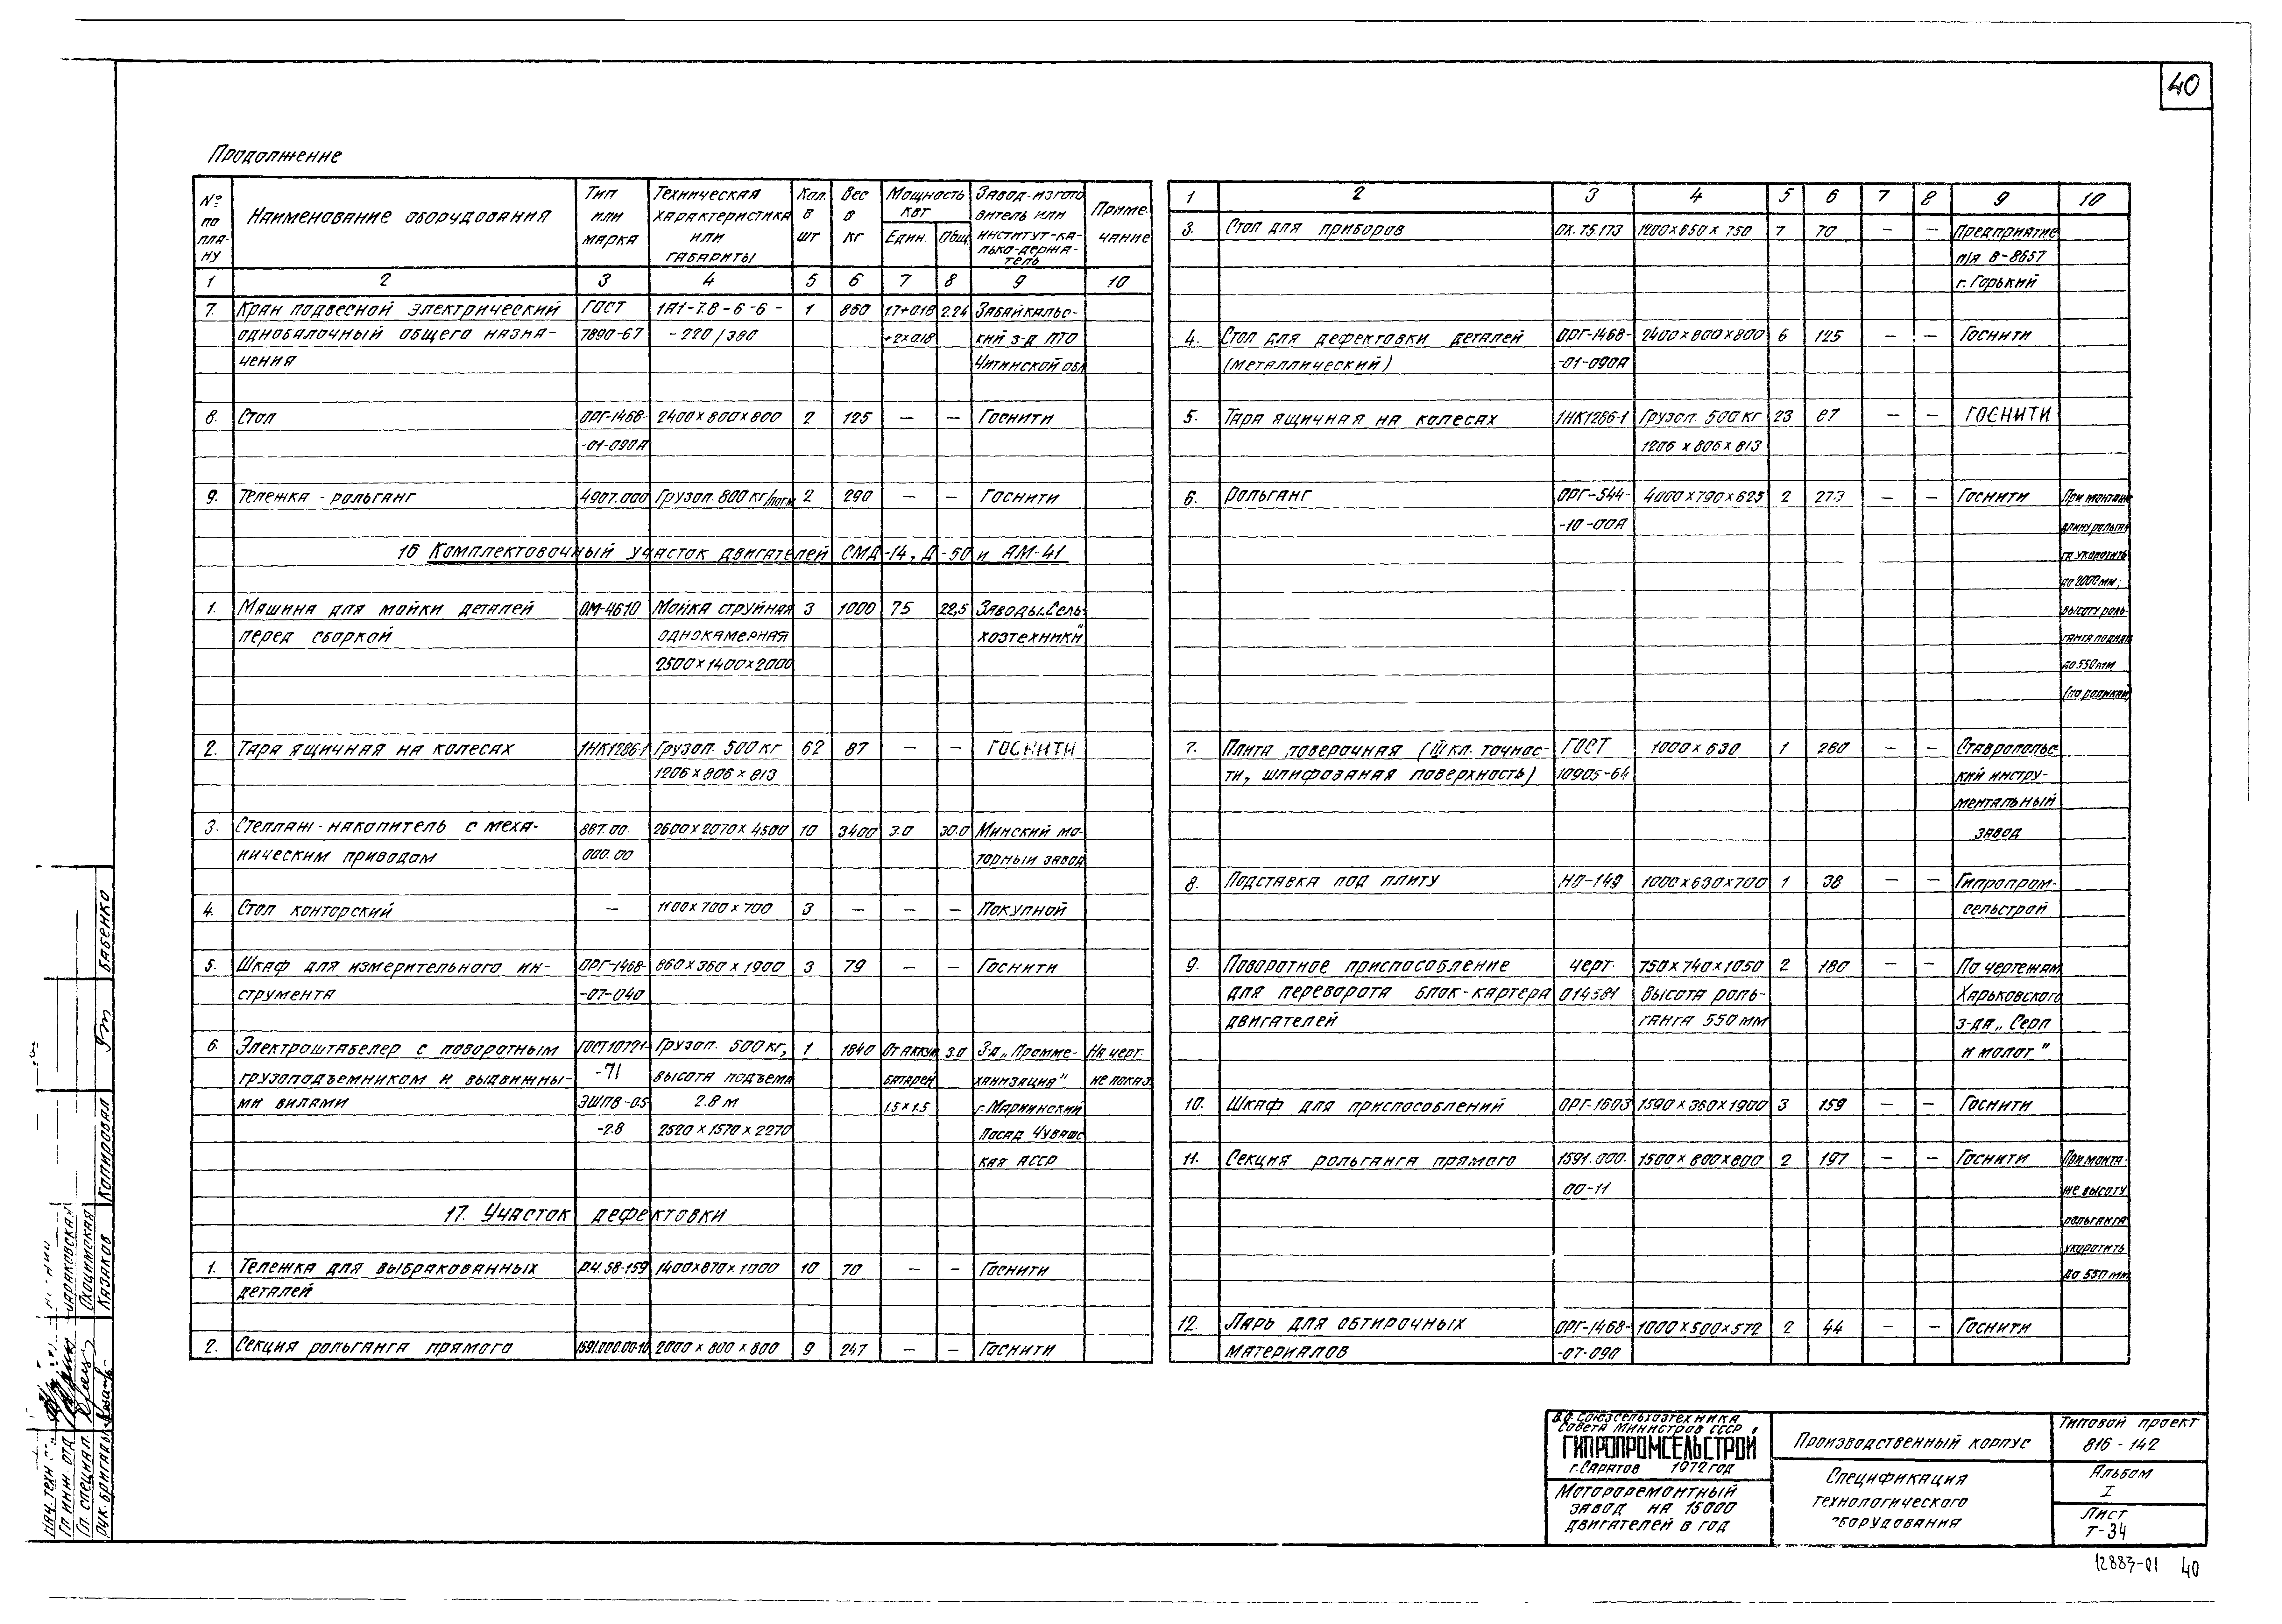 40
Продолжение
№ по плану | Наименование оборудования | Тип или марка | Техническая характеристика или габариты | Кол. в шт | Вес в кг | Мощность квт Един. Общ. | Завод-изготовитель или институт-калько-держатель | Примечание
1 2 3 4 5 6 7 8 9 10
7. Кран подвесной электрический ГОСТ 1А1-7.8-6-6- 1 860 1.7+0.18 2.24 Забайкальс-
однобалочный общего назна- 7890-67 -220/380 +2×0.18 кий з-д ПТО
чения Читинской обл
8. Стол ОРГ-1468- 2400×800×800 2 125 — — Госнити
-01-090А
9. Тележка-рольганг 4907.000 Грузоп. 800 кг/пог.м 2 290 — — Госнити
16 Комплектовочный участок двигателей СМД-14, Д-50 и АМ-41
1. Машина для мойки деталей ОМ-4610 Мойка струйная 3 1000 75 22,5 Заводы „Сель-
перед сборкой однокамерная хозтехники"
2500×1400×2000
2. Тара ящичная на колесах 1НК1286-1 Грузоп. 500 кг 62 87 — — ГОСНИТИ
1206×806×813
3. Стеллаж-накопитель с меха- 887.00. 2600×2070×4500 10 3400 3.0 30.0 Минский мо-
ническим приводом 000.00 торный завод
4. Стол конторский — 1100×700×700 3 — — — Покупной
5. Шкаф для измерительного ин- ОРГ-1468- 860×360×1900 3 79 — — Госнити
струмента -07-040
6. Электроштабелер с поворотным ГОСТ10721- Грузоп. 500 кг, 1 1840 От аккум. 3.0 З-д „Промме- На черт.
грузоподъемником и выдвижны- -71 высота подъема батарей ханизация" не показ.
ми вилами ЭШПВ-05 2.8 м 1.5×1.5 г. Мариинский
-2.8 2520×1570×2270 Посад Чувашс
кая АССР
17. Участок дефектовки
1. Тележка для выбракованных Р.Ч.58-159 1400×870×1000 10 70 — — Госнити
деталей
2. Секция рольганга прямого 1591.000.00-10 2000×800×800 9 247 — — Госнити
1 2 3 4 5 6 7 8 9 10
3. Стол для приборов ОК.75.173 1200×650×750 7 70 — — Предприятие
п/я В-8657
г. Горький
4. Стол для дефектовки деталей ОРГ-1468- 2400×800×800 6 125 — — Госнити
(металлический) -01-090А
5. Тара ящичная на колесах 1НК1286-1 Грузоп. 500 кг 23 87 — — ГОСНИТИ
1206×806×813
6. Рольганг ОРГ-544- 4000×790×625 2 273 — — Госнити При монтаже
-10-00А длину рольган
га укоротить
до 2000 мм;
высоту роль-
ганга поднять
до 550 мм
(по роликам)
7. Плита поверочная (III кл. точнос- ГОСТ 1000×630 1 280 — — Ставропольс
ти, шлифованая поверхность) 10905-64 кий инстру-
ментальный
завод
8. Подставка под плиту НО-149 1000×630×700 1 38 — — Гипропром-
сельстрой
9. Поворотное приспособление черт. 750×740×1050 2 180 — — По чертежам
для переворота блок-картера 014581 Высота роль- Харьковского
двигателей ганга 550 мм з-да „Серп
и молот"
10. Шкаф для приспособлений ОРГ-1603 1590×360×1900 3 159 — — Госнити
11. Секция рольганга прямого 1591.000. 1500×800×800 2 197 — — Госнити При монта-
00-11 же высоту
рольганга
укоротить
до 550 мм
12. Ларь для обтирочных ОРГ-1468- 1000×500×572 2 44 — — Госнити
материалов -07-090
В.О. Союзсельхозтехника
Совета Министров СССР
ГИПРОПРОМСЕЛЬСТРОЙ
г. Саратов 1972 год
Мотороремонтный
завод на 15000
двигателей в год
Производственный корпус
Спецификация
технологического
оборудования
Типовой проект
816-142
Альбом
I
Лист
Т-34
12883-01 40
Бабенко
Копировал
Охоцимская
Казаков
Нач. техн.
Гл. инн. отд
Гл. специал.
Рук. бригады